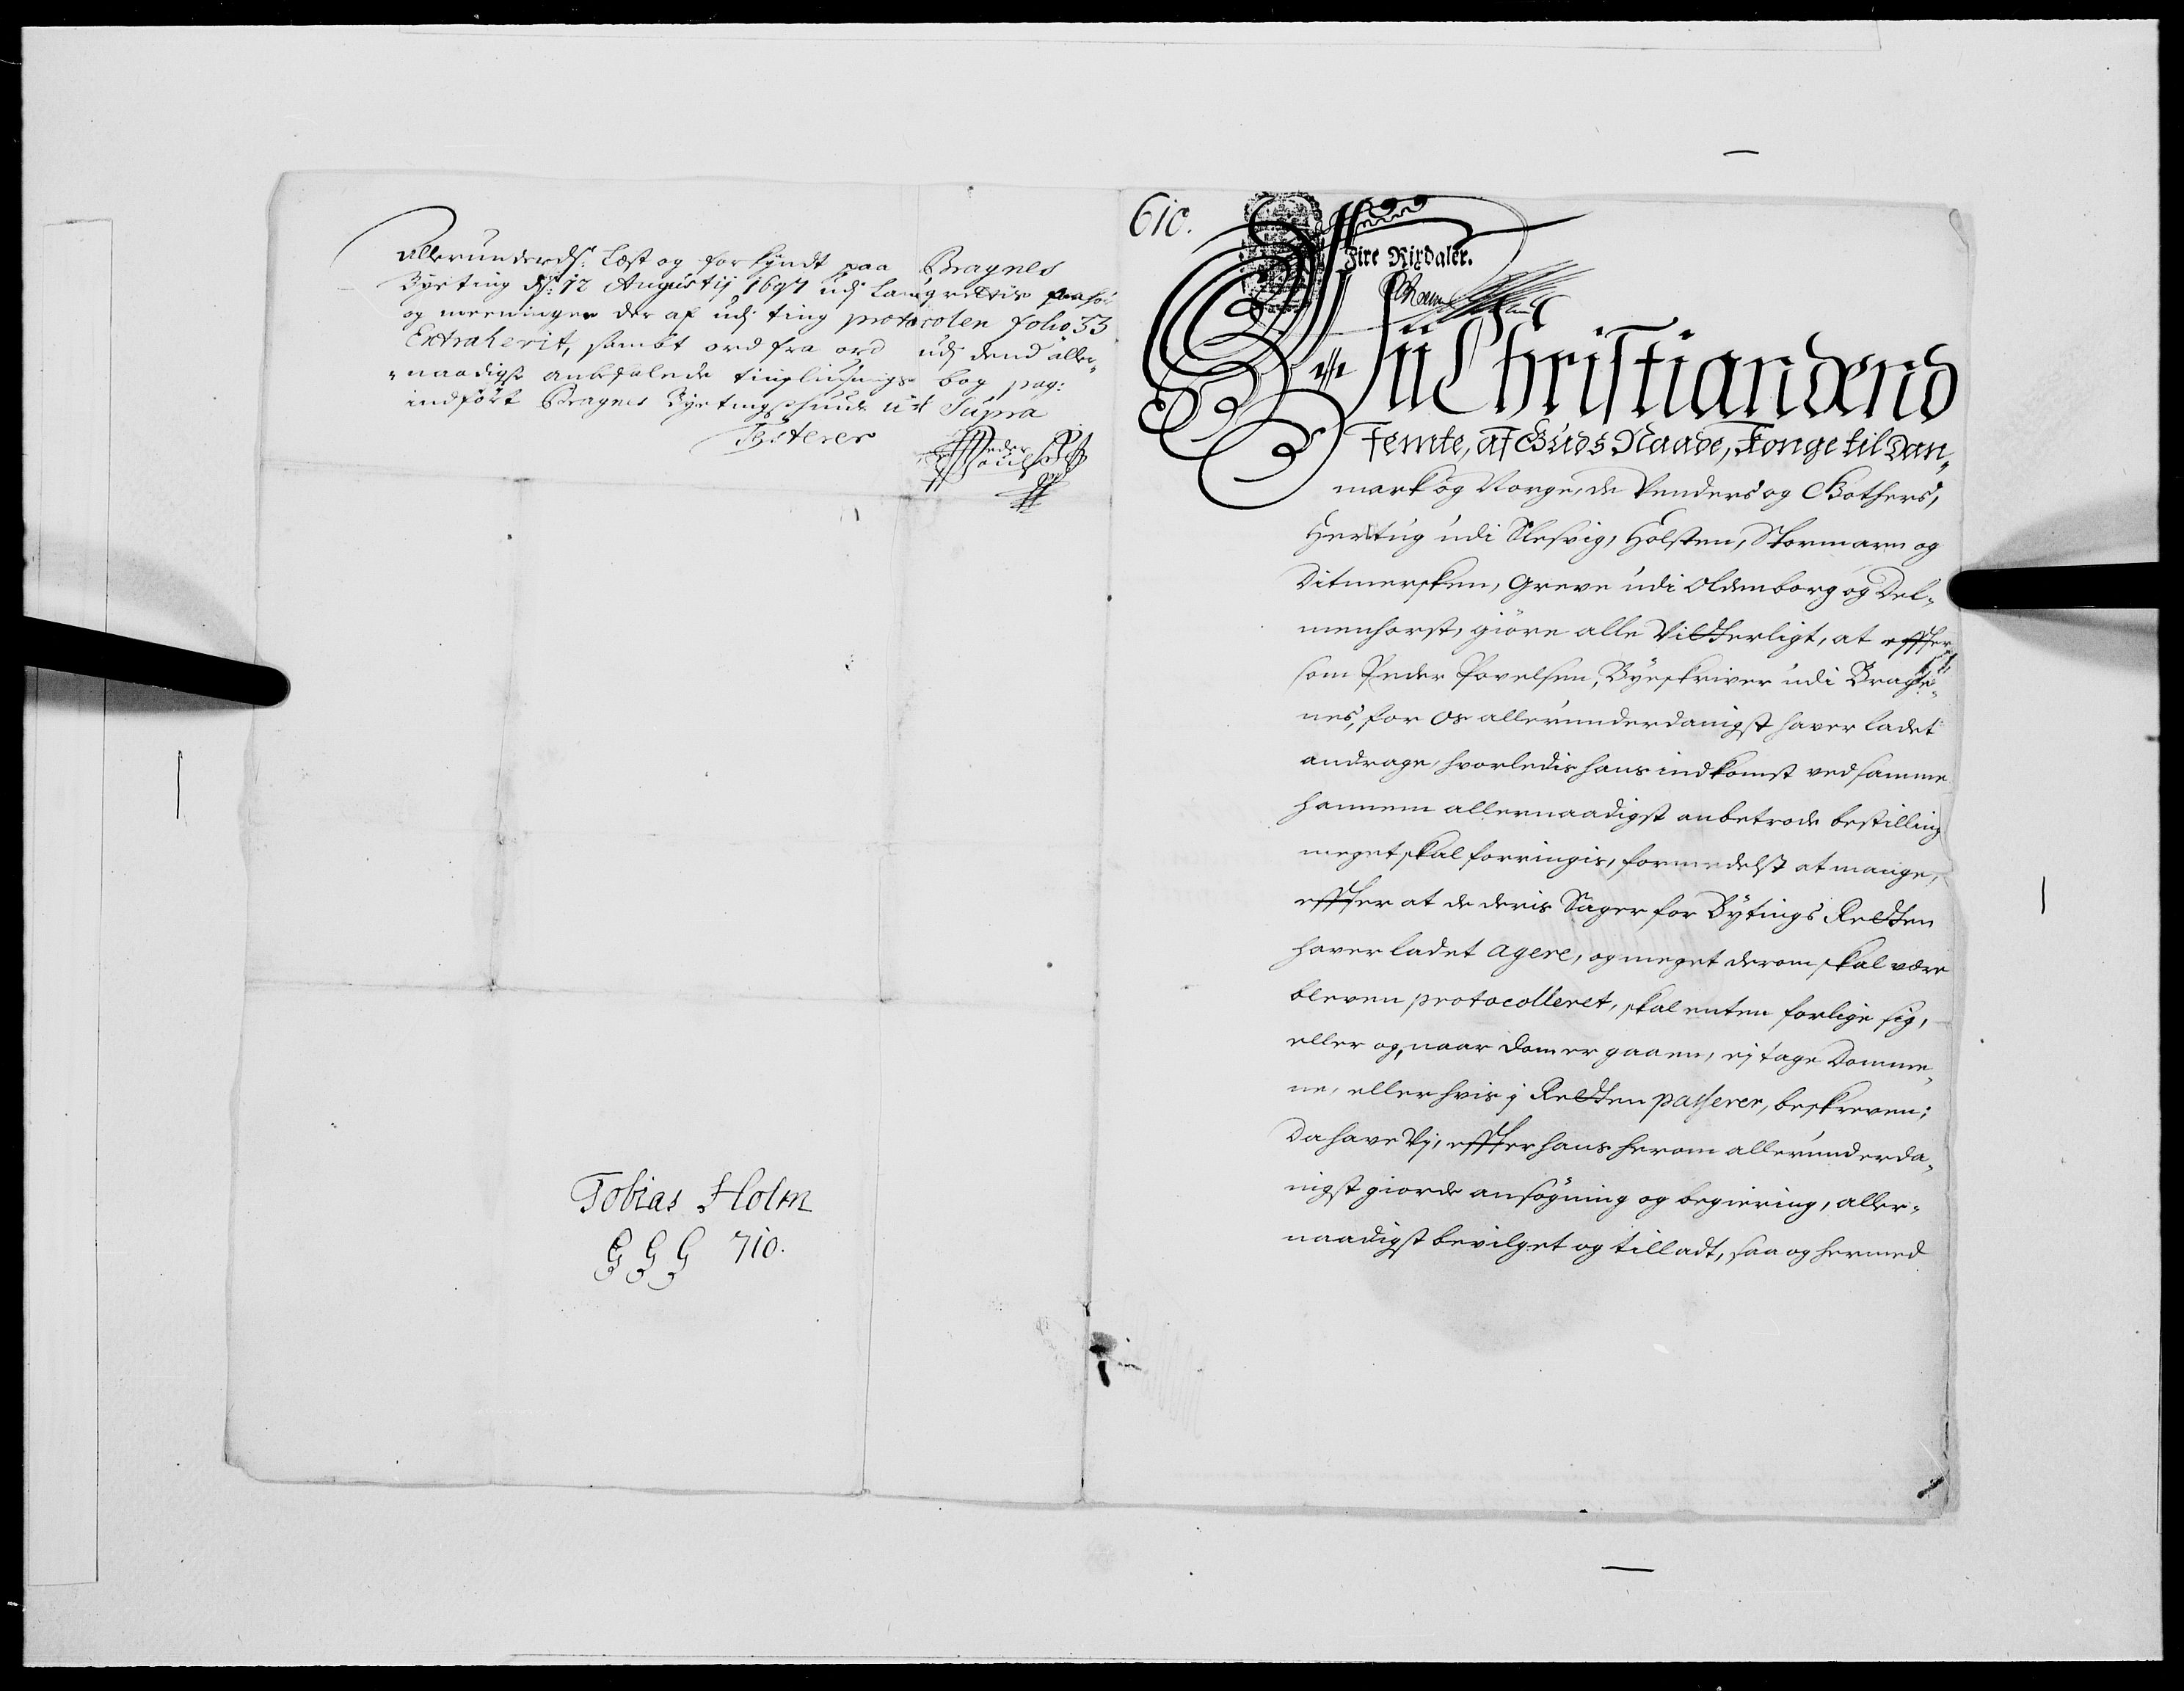 Allerunderdst: Læst og forkyndt paa Bragnes
Byeting d: 12 Augustij 1697 udj Laugrettis paahør
og meeningen der af udj ting protocolen folio 33
Extraherit, sambt ord fra ord udj dend aller-
naadigst anbefalede tinglusnings bog pag:
indført Bragnes Byetingstuude ut Supra
Testerer
Peder Poulsen
Tobias Holm
G G G 710.
610.
Fire Rixdaler.
Vii Christian dend
Femte, af Guds Naade, Konge til Dan-
mark og Norge, de Venders og Gothers,
Hertug udi Slesvig, Holsten, Stormarn og
Ditmersken, Greve udi Oldenborg og Del-
menhorst, giøre alle Vitterligt, at effter-
som Peder Povelsen, Byeskriver udi Brage-
nes, for Os allerunderdanigst haver ladet
andrage, hvorledis hans indkomst ved samme
hannem allernaadigst anbetrode bestilling
meget skal forringis, formedelst at mange,
effter at de deris Sager for Bytings Retten
haver ladet agere, og meget derom skal være
bleven protocolleret, skal enten forlige sig,
eller og, naar Dom er gaaen, ej tage Domme-
ne, eller hvis j Retten passerer, beskreven;
Da have Vj, effter hans herom allerunderda-
nigst giorde ansøgning og begiering, aller-
naadigst bevilget og tilladt, saa og hermed